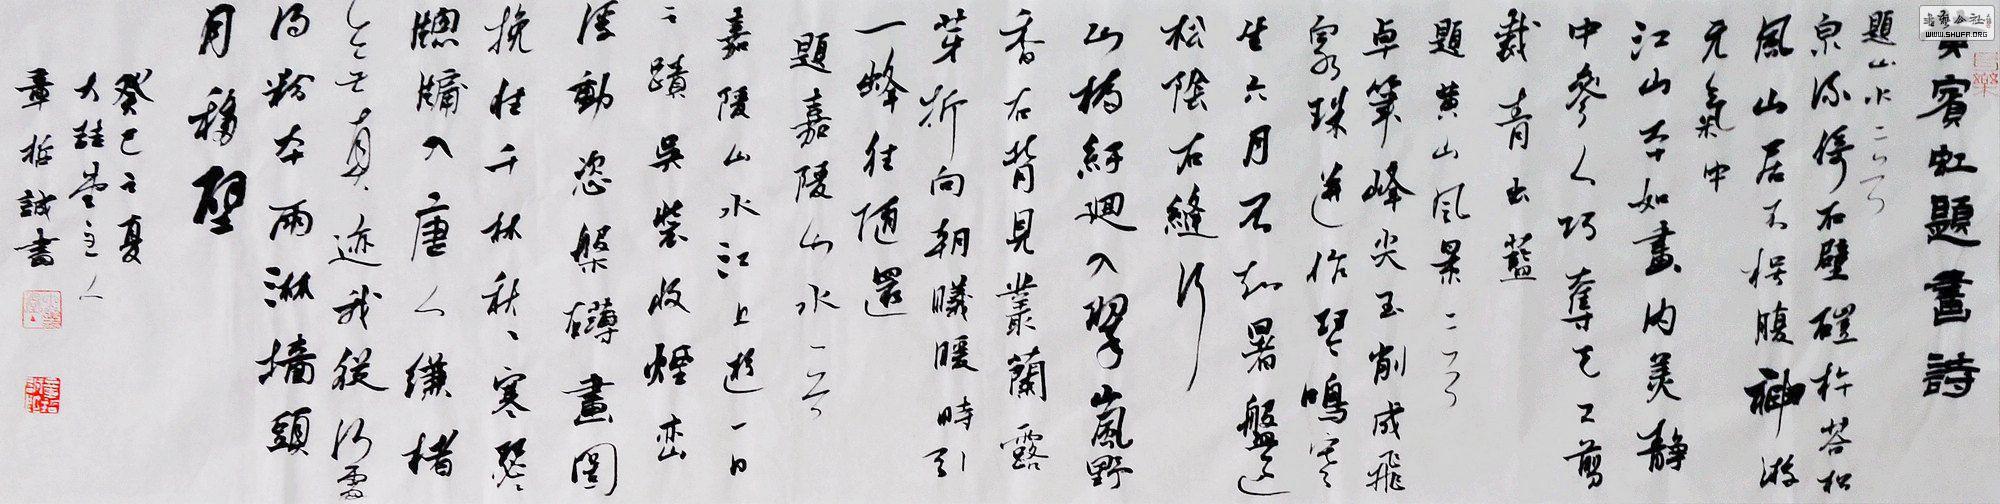 黃賓虹題畫詩
題山水二首
泉流倚石壁磴杵答松
風山居不悮腹神游
元氣中
江山本如畫內美靜
中參人巧奪天工剪
裁青出藍
題黃山風景二首
卓筆峰尖玉削成飛
泉珠迸作琴鳴寒
生六月不知暑盤過
松陰石縫行
山橋紆迴入翠嵐野
香石背見叢蘭露
芽折向朝曦暖時引
一蜂往隨還
題嘉陵山水一首
嘉陵山水江上遊一日
之蹟吳裝收煙巒
浮動恣槃礴畫圖
挽住千林秋、寒聲
牕牖入唐人縑楮
真迹我從何
得粉本雨淋墻頭
月移壁
癸巳之夏
大堂主人
章哲誠書
書藝公社
WWW.SHUFA.ORG